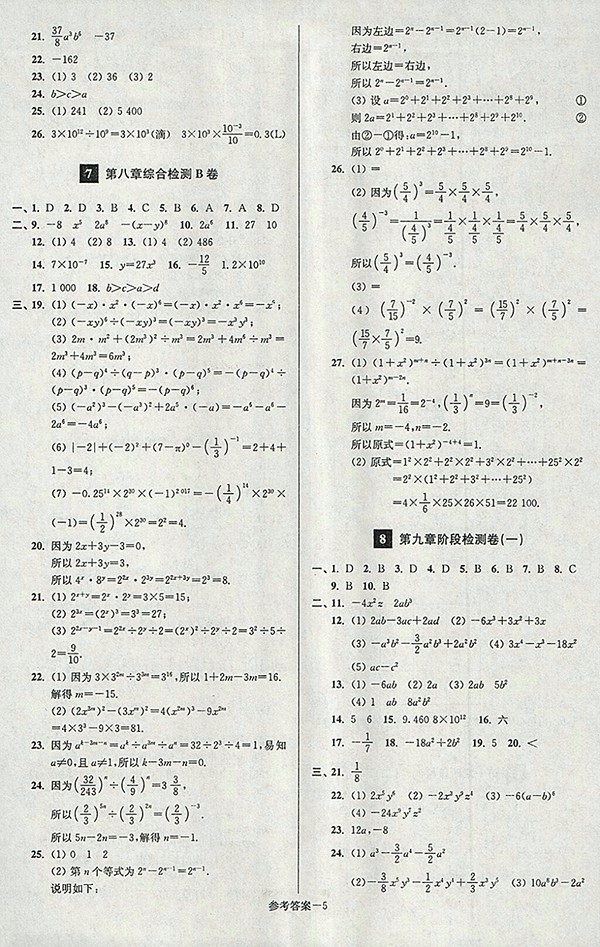 21. 37/8 a³b⁶  −37
22. −162
23. (1) 3  (2) 36  (3) 2
24. b>c>a
25. (1) 241  (2) 5 400
26. 3×10¹²÷10⁹=3×10³(滴)  3×10³×10⁻³/10=0.3(L)
7 第八章综合检测 B 卷
一、1. D  2. D  3. B  4. C  5. B  6. A  7. A  8. D
二、9. −8  x⁵  2a⁸  −(x−y)⁸  10. 2a⁶  11. 27  10
12. (1) 4  (2) 8  13. (1) 4  (2) 486
14. 7×10⁻⁷  15. y=27x³  16. −12/5  1.2×10¹⁰
17. 1 000  18. b>c>a>d
三、19. (1) (−x)·x²·(−x)⁶=(−x)·x²·x⁶=−x⁹;
(2) (−xy)⁶÷(−xy)³=(−xy)³=−x³y³;
(3) 2m·m²+(2m³)²÷m³=2m³+4m⁶÷m³=
2m³+4m³=6m³;
(4) (p−q)⁴÷(q−p)³·(p−q)⁵=−(p−q)⁴÷
(p−q)³·(p−q)⁵=−(p−q)⁶;
(5) (−a²)³−(−a³)²+2a⁵·(−a)=−a⁶−a⁶−
2a⁶=−4a⁶;
(6) |−2|+(−2)²+(7−π)⁰−(1/3)⁻¹=2+4+
1−3=4;
(7) −0.25¹⁴×2³⁰×(−1)²⁰¹⁷=−(1/4)¹⁴×2³⁰×
(−1)=(1/2)²⁸×2³⁰=2²=4.
20. 因为 2x+3y−3=0,
所以 2x+3y=3,
所以 4ˣ·8ʸ=2²ˣ·2³ʸ=2²ˣ⁺³ʸ=2³=8.
21. (1) 2ˣ⁺ʸ=2ˣ·2ʸ=3×5=15;
(2) 2³ˣ=(2ˣ)³=3³=27;
(3) 2²ˣ⁻ʸ⁻¹=2²ˣ÷2ʸ÷2=(2ˣ)²÷2ʸ÷2=3²÷5÷
2=9/10.
22. (1) 因为 3×3²ᵐ÷3³ᵐ=3¹⁶,所以 1+2m−3m=16.
解得 m=−15.
(2) (2x³ᵐ)²−(3xᵐ)²=4(x²ᵐ)³−9x²ᵐ
=4×3³−9×3=81.
23. 因为 aᵏ⁻³ᵐ⁻ⁿ=aᵏ÷a³ᵐ÷aⁿ=32÷2³÷4=1,易知
a≠0,且 a≠1,所以 k−3m−n=0.
24. 因为(32/243)ⁿ÷(4/9)ⁿ=3 3/8,
所以(2/3)⁵ⁿ÷(2/3)²ⁿ=(2/3)⁻³.
所以 5n−2n=−3,解得 n=−1.
25. (1) 0  1  2
(2) 第 n 个等式为 2ⁿ−2ⁿ⁻¹=2ⁿ⁻¹.
说明如下:
因为左边=2ⁿ−2ⁿ⁻¹=2ⁿ⁻¹(2−1)=2ⁿ⁻¹,
右边=2ⁿ⁻¹,
所以左边=右边,
所以 2ⁿ−2ⁿ⁻¹=2ⁿ⁻¹.
(3) 设 a=2⁰+2¹+2²+2³+⋯+2⁸+2⁹, ①
则 2a=2¹+2²+2³+⋯+2⁸+2⁹+2¹⁰. ②
由②−①得:a=2¹⁰−1,
所以 2⁰+2¹+2²+2³+⋯+2⁸+2⁹=2¹⁰−1.
26. (1) =
(2) 因为(5/4)³=5/4×5/4×5/4,
(4/5)⁻³=1/(4/5)³=1/(4/5×4/5×4/5)=5/4×5/4×5/4,
所以(5/4)³=(4/5)⁻³.
(3) =
(4) (7/15)⁻²×(7/5)²=(15/7)²×(7/5)²=
(15/7×7/5)²=9.
27. (1) (1+x²)ᵐ⁺ⁿ÷(1+x²)³ⁿ=(1+x²)ᵐ⁺ⁿ⁻³ⁿ=
(1+x²)ᵐ⁻²ⁿ.
因为 2ᵐ=1/16=2⁻⁴,(1/3)ⁿ=9=(1/3)⁻²,
所以 m=−4,n=−2.
所以原式=(1+x²)⁻⁴⁺⁴=1.
(2) 原式=1²×2²+2²×2²+3²×2²+⋯+25²×2²
=2²×(1²+2²+3²+⋯+25²)
=4×1/6×25×26×51=22 100.
8 第九章阶段检测卷(一)
一、1. D  2. B  3. D  4. D  5. B  6. B  7. B  8. C
9. B  10. B
二、11. −4x²z  2ab³
12. (1) 2ab−3ac+2ad  (2) −6x³+3x²+3x
(3) −a³b²−3/2a²b³+2a²b²  (4) 3x⁴−x³−18x²
(5) ac−c²
13. (1) −6ab  (2) 2a  (3) 2ab  5b²
(4) 1  ab  8a²b²
14. 5  6  15. 9.460 8×10¹²  16. 六
17. −1/7  18. −18a²+2b²  19. 5  20. <
三、21. 1/8
22. (1) 2x⁵y⁶  (2) −2x³y⁵z⁴  (3) −6(a−b)⁶
(4) −24x⁹y⁷z²
23. 12a,−8
24. (1) a³−3/2a⁴−5/2a²
(2) −3/8x⁵y³−1/2x⁴y⁴+2/3x³y⁵  (3) 10a⁸b²−2a²
参考答案—5